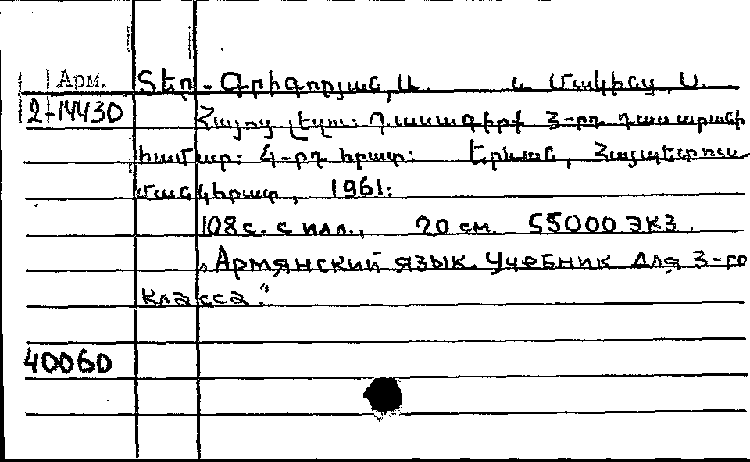 Арм. Տեր-Գրիգորյան, Ա. և Մակինց, Ս.
2-14430 Հայոց լեզու: Դասագիրք 3-րդ դասարանի
համար: 4-րդ հրատ: Երևան, Հայպետուս-
մանկհրատ, 1961:
108 с. с илл., 20 см. 55000 экз.
„Армянский язык. Учебник для 3-го
класса."
40060